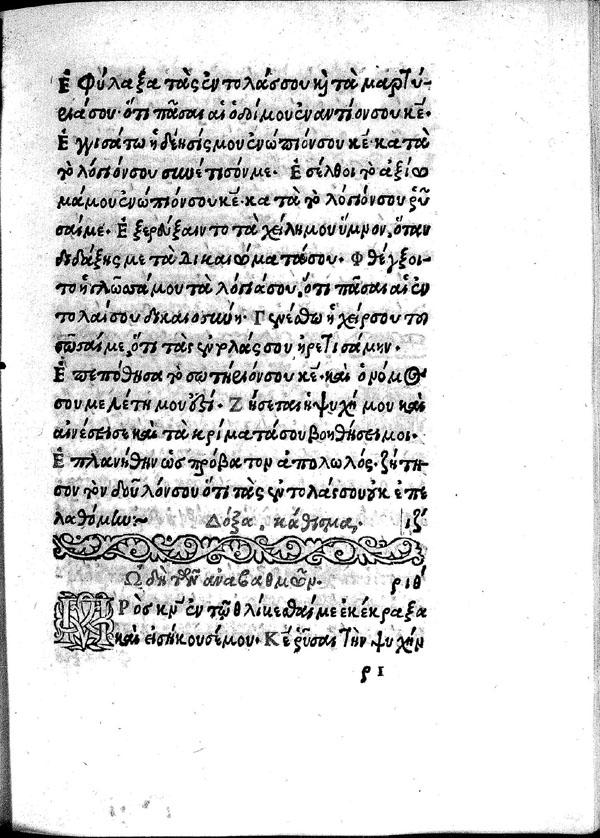 Ἐφύλαξα τὰς ἐντολάς σου κὶ τὰ μαρτύ-
ριά σου· ὅτι πᾶσαι αἱ ὁδοί μου ἐναντίον σου κε̅·
Ἐγγισάτω ἡ δέησίς μου ἐνώπιόν σου κε̅· κατὰ
τὸ λόγιόν σου συνέτισόν με· Εἰσέλθοι τὸ ἀξίω
μά μου ἐνώπιόν σου κε̅· κατὰ τὸ λόγιόν σου ῥῦ
σαί με· Ἐξερεύξαιντο τὰ χείλη μου ὕμνον, ὅταν
διδάξῃς με τὰ δικαιώματά σου· Φθέγξοι-
το ἡ γλῶσσά μου τὰ λόγιά σου, ὅτι πᾶσαι αἱ ἐν
τολαί σου δικαιοσύνη· Γενέσθω ἡ χείρ σου τοῦ
σῶσαί με, ὅτι τὰς ἐντολάς σου ᾑρετισάμην·
Ἐπεπόθησα τὸ σωτήριόν σου κε̅· καὶ ὁ νόμος
σου μελέτη μου ἐστί· Ζήσεται ἡ ψυχή μου καὶ
αἰνέσει σε καὶ τὰ κρίματά σου βοηθήσει μοι·
Ἐπλανήθην ὡς πρόβατον ἀπολωλός· ζήτη-
σον τὸν δοῦλόν σου ὅτι τὰς ἐντολάς σου οὐκ ἐπε
λαθόμην~ Δόξα, κάθισμα, ιζʹ
Ὠδὴ τῶν ἀναβαθμῶν· ριθʹ
ΠΡὸς κν̅ ἐν τῷ θλίβεσθαί με ἐκέκραξα
καὶ εἰσήκουσέ μου· Κε̅ ῥῦσαι τὴν ψυχήν
ρ ι